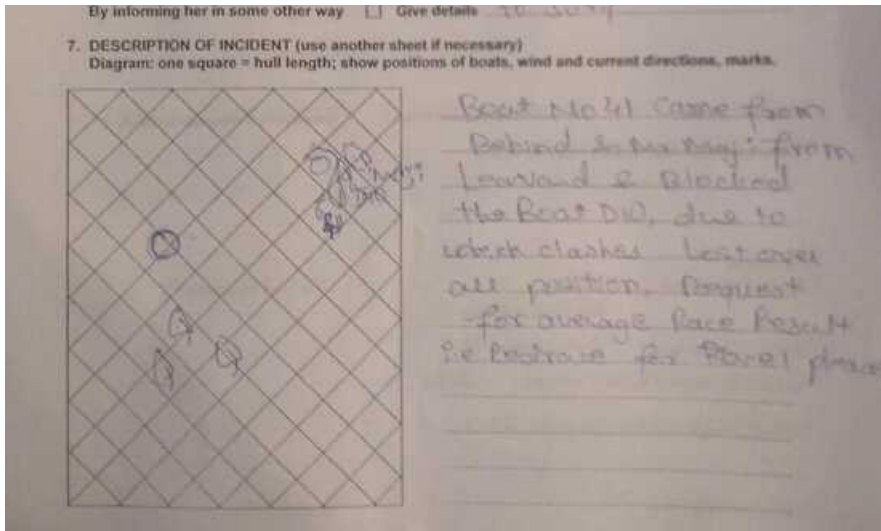 By informing her in some other way Give details
7. DESCRIPTION OF INCIDENT (use another sheet if necessary)
Diagram: one square = hull length; show positions of boats, wind and current directions, marks.
Boat No 41 Came from
Behind from
Leavand & Blocked
the Boat due to
clashes Lost over
all position. Request
for average Race Result
i.e for